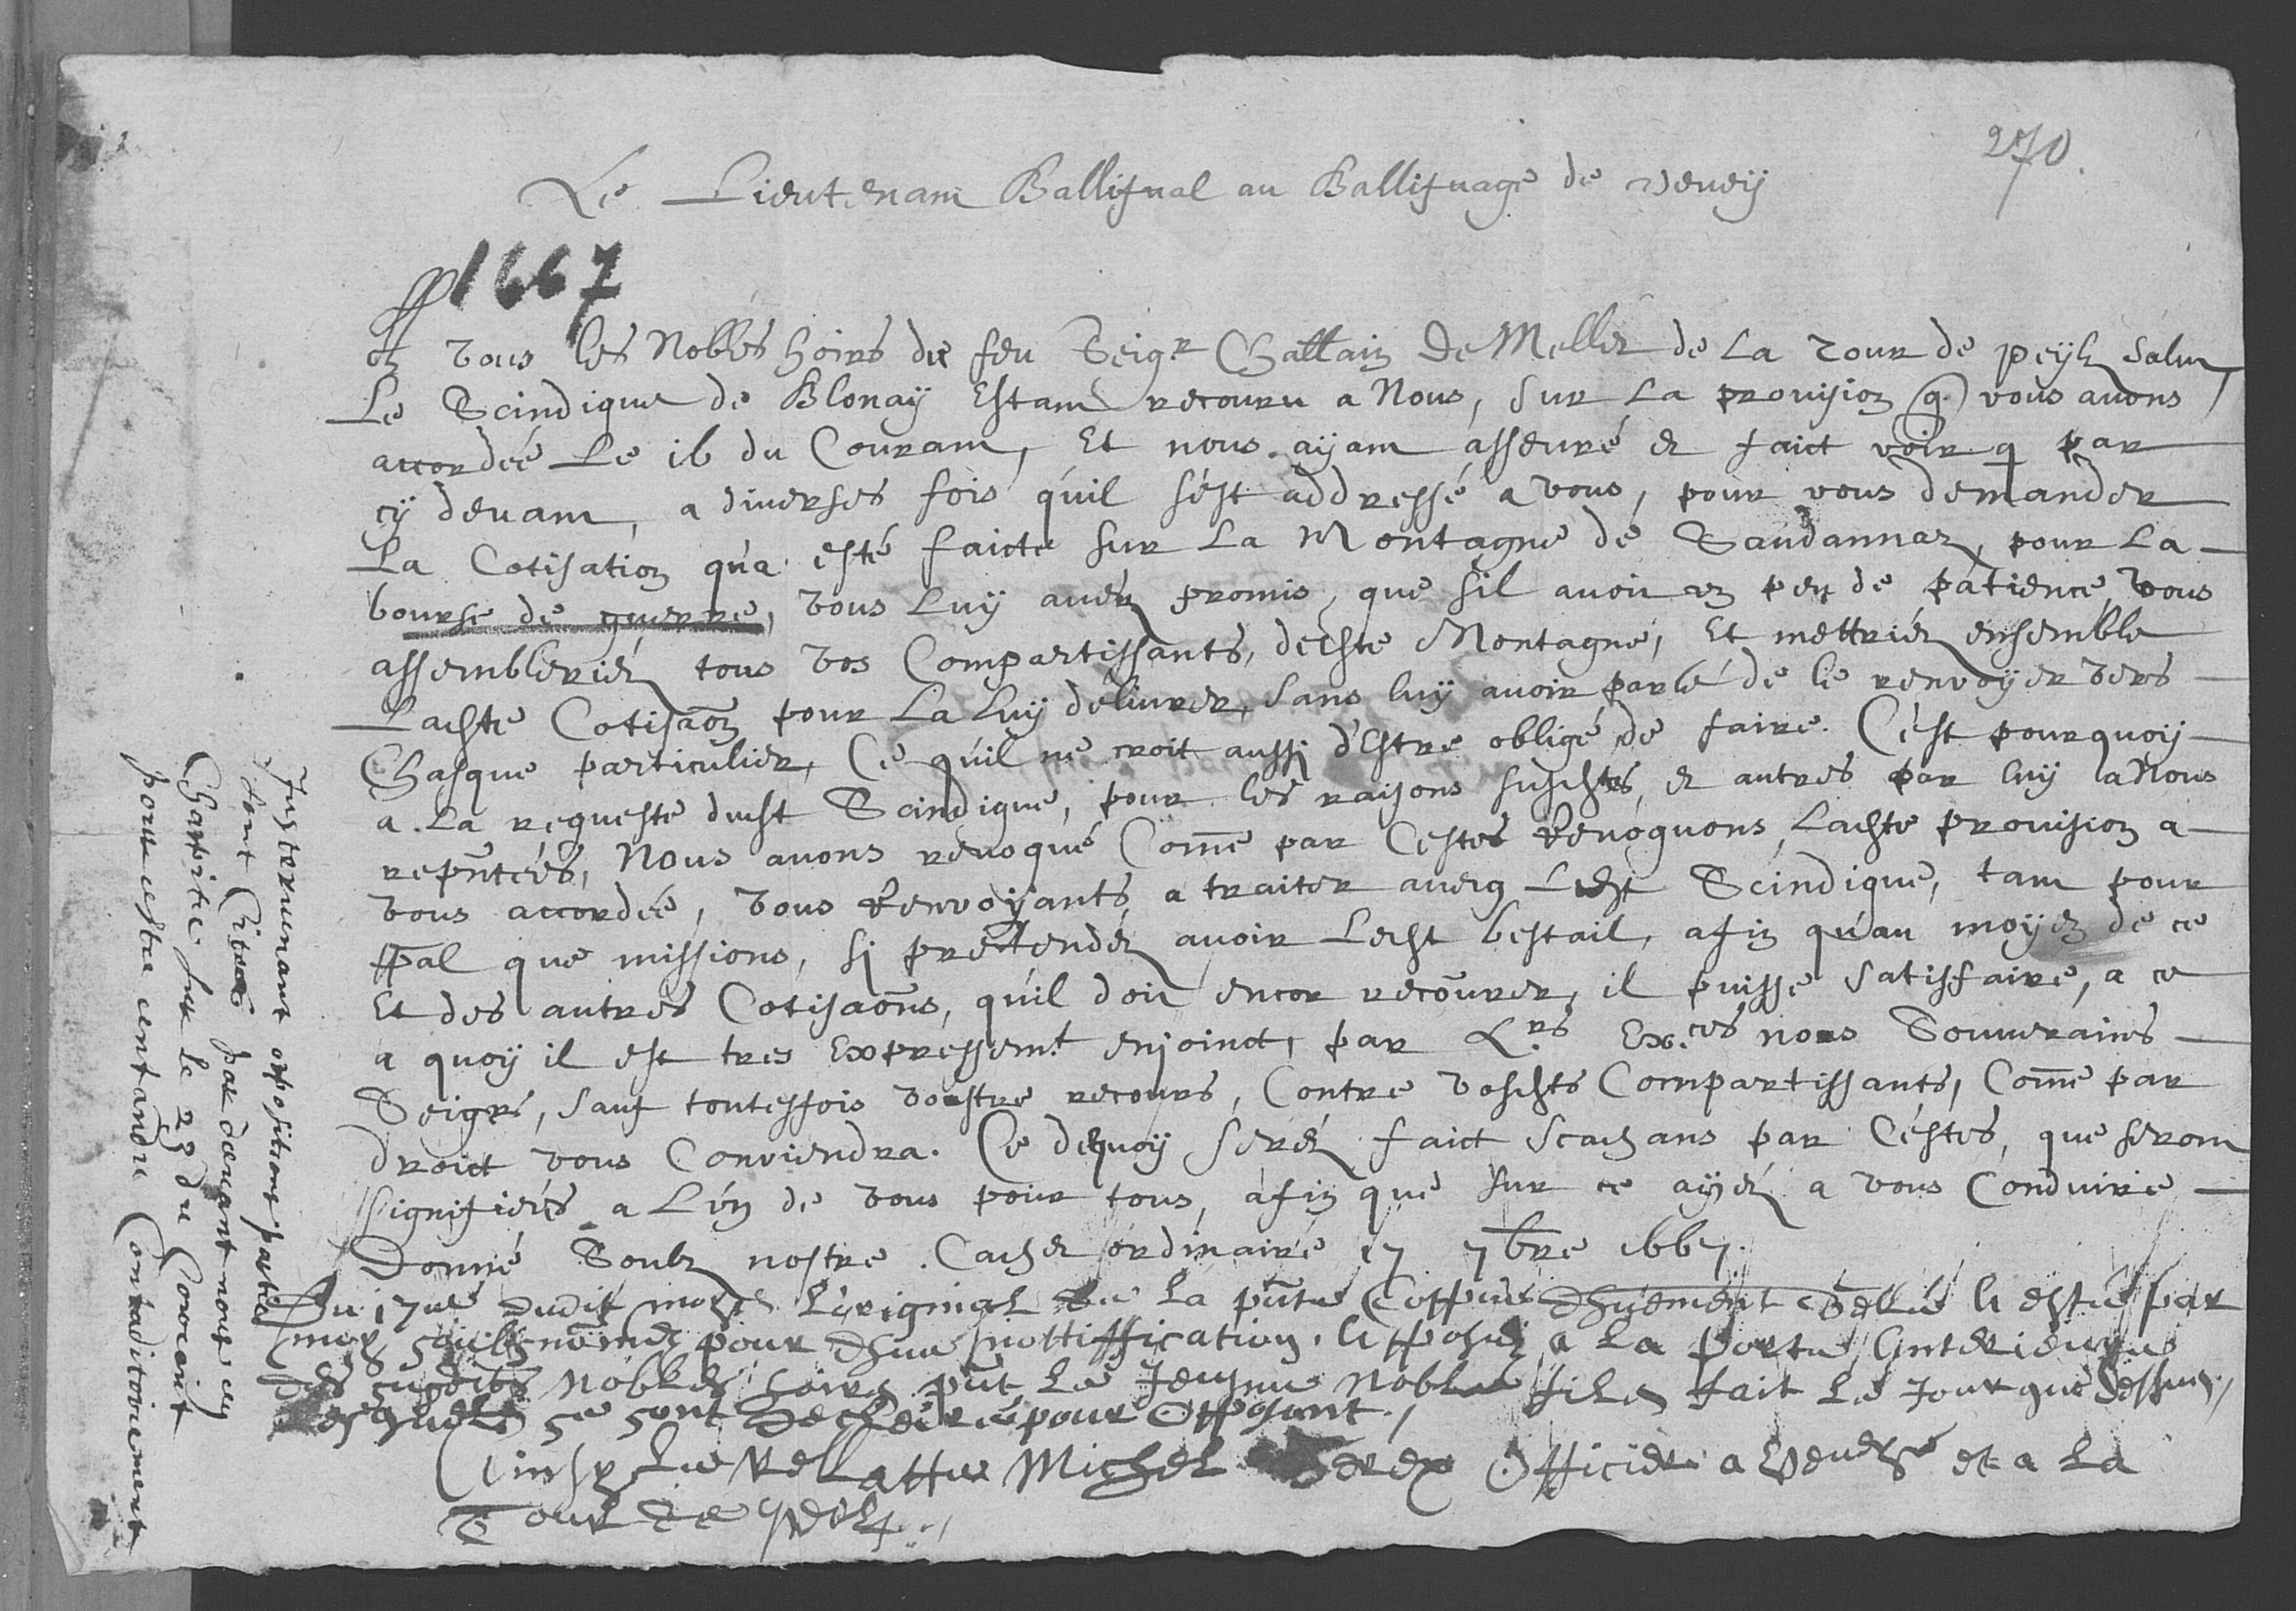 270.
Le Lieutenant Ballifual au Ballifuage de Vevey
1667
A vous les Nobles hoirs du feu Seigr Chattain De Mellet de La Tour de peylz salut
Le Scindique de Blonay Estant recouru a Nous, sur La provision q. vous avons
accordée Le 16 du Courant, Et nous ayant asseuré et faict voir q par
cy devant, a diverses fois qu'il s'est addressé a vous, pour vous demander
La Cotisation qu'a esté faicte sur La Montagne de Saudannaz, pour La
bourse de guerre, vous Luy avez promis, que s'il avoit un peu de patience vous
assembleriéz tous vos Compartissants, de Montagne, Et mettriéz ensemble
Cotisaon pour La Luy délivrer, sans luy avoir parlé de le renvoyer vers
Chasque particulier, Ce qu'il ne croit aussi d'Estre obligé de faire. C'est pourquoy
a La requeste dudt Scindique, pour les raisons susdtes, et autres par luy a Nous
repntées, Nous avons revoqué Comme par Cestes Revoquons Ladte provision a
vous accordée, vous Renvoyants a traiter avecq Ledt Scindique, tant pour
ppal que missions, si prettendéz avoir Ledt bestail, afin qu'au moyen de ce
Et des autres Cotisaons, qu'il doit encor recouvrer, il puisse satisfaire, a ce
a quoy il est tres Expressemt enjoinct, par L.rs Ex.ces nos Souverains
Seigrs, sauf toutesfois vostre recours, Contre vosdts Compartissants, Comme par
droict vous Conviendra. Ce dequoy seréz faict scachans par Céstes, que seront
signifiées a L'un de vous pour tous, afin que sur ce ayéz a vous Conduire
Donné Soubz nostre Cachet ordinaire 17 7bre 1667.
Du 17me dudit mois L'original de La pnte Coppie dhuement Sellé a esté par
moy soubsnommé pour dhue nottiffication, apposéz a La porte Interieure
des susdits Nobles hoirs pnt Le Jeusne Noble fils fait Le Jour que dessus
Lesquels se sont déclaré pour Opposant.
Ainsy Le Rellatte Michel Officier a Vevey et a La
Tour de Peilz.
Intervenant opposition partie
sont Citée par devant nous en
Chapitre sur le 23 du Courant
pour estre entandu Contraditoirement